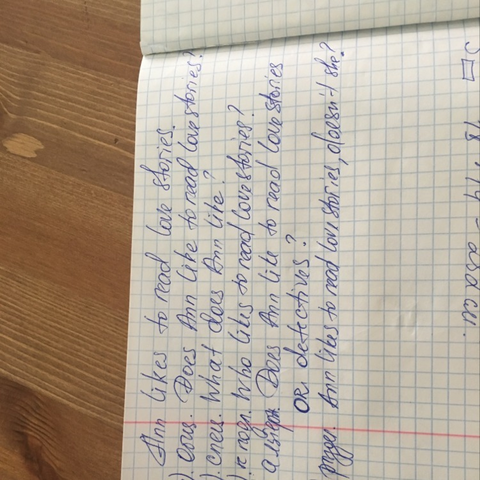 Ann likes to read love stories.
) Общ. Does Ann like to read love stories?
) спец. What does Ann like?
) к подл. Who likes to read love stories?
альтерн. Does Ann like to read love stories
OR detectives?
разд. Ann likes to read love stories, doesn't she?